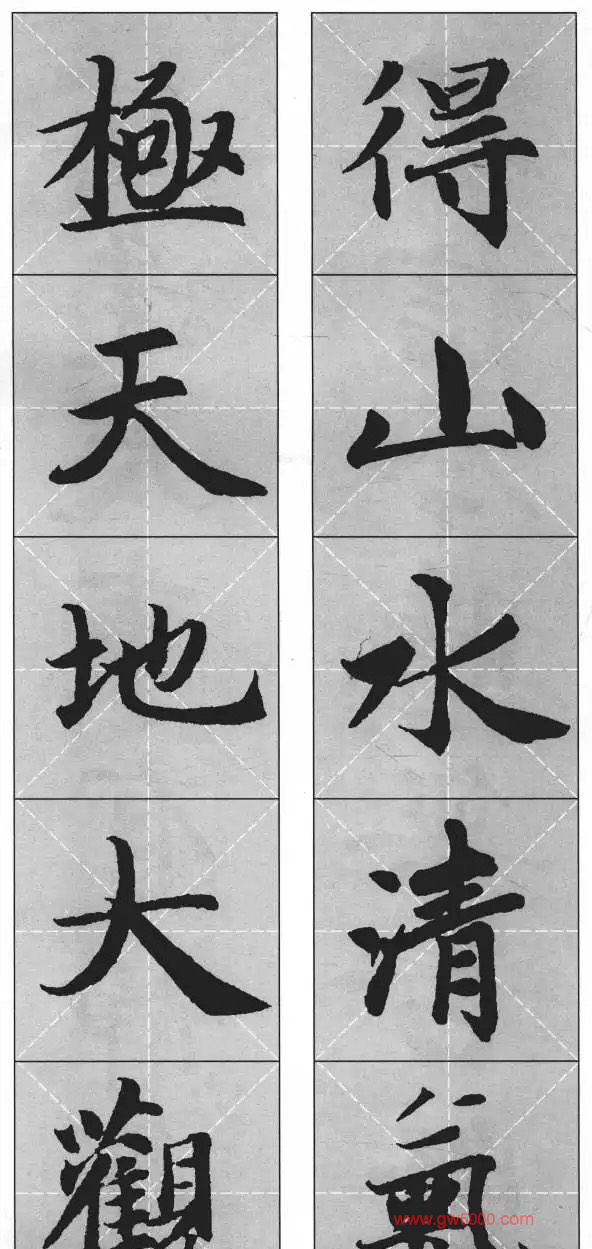 得山水清氣
極天地大觀
www.gw5000.com